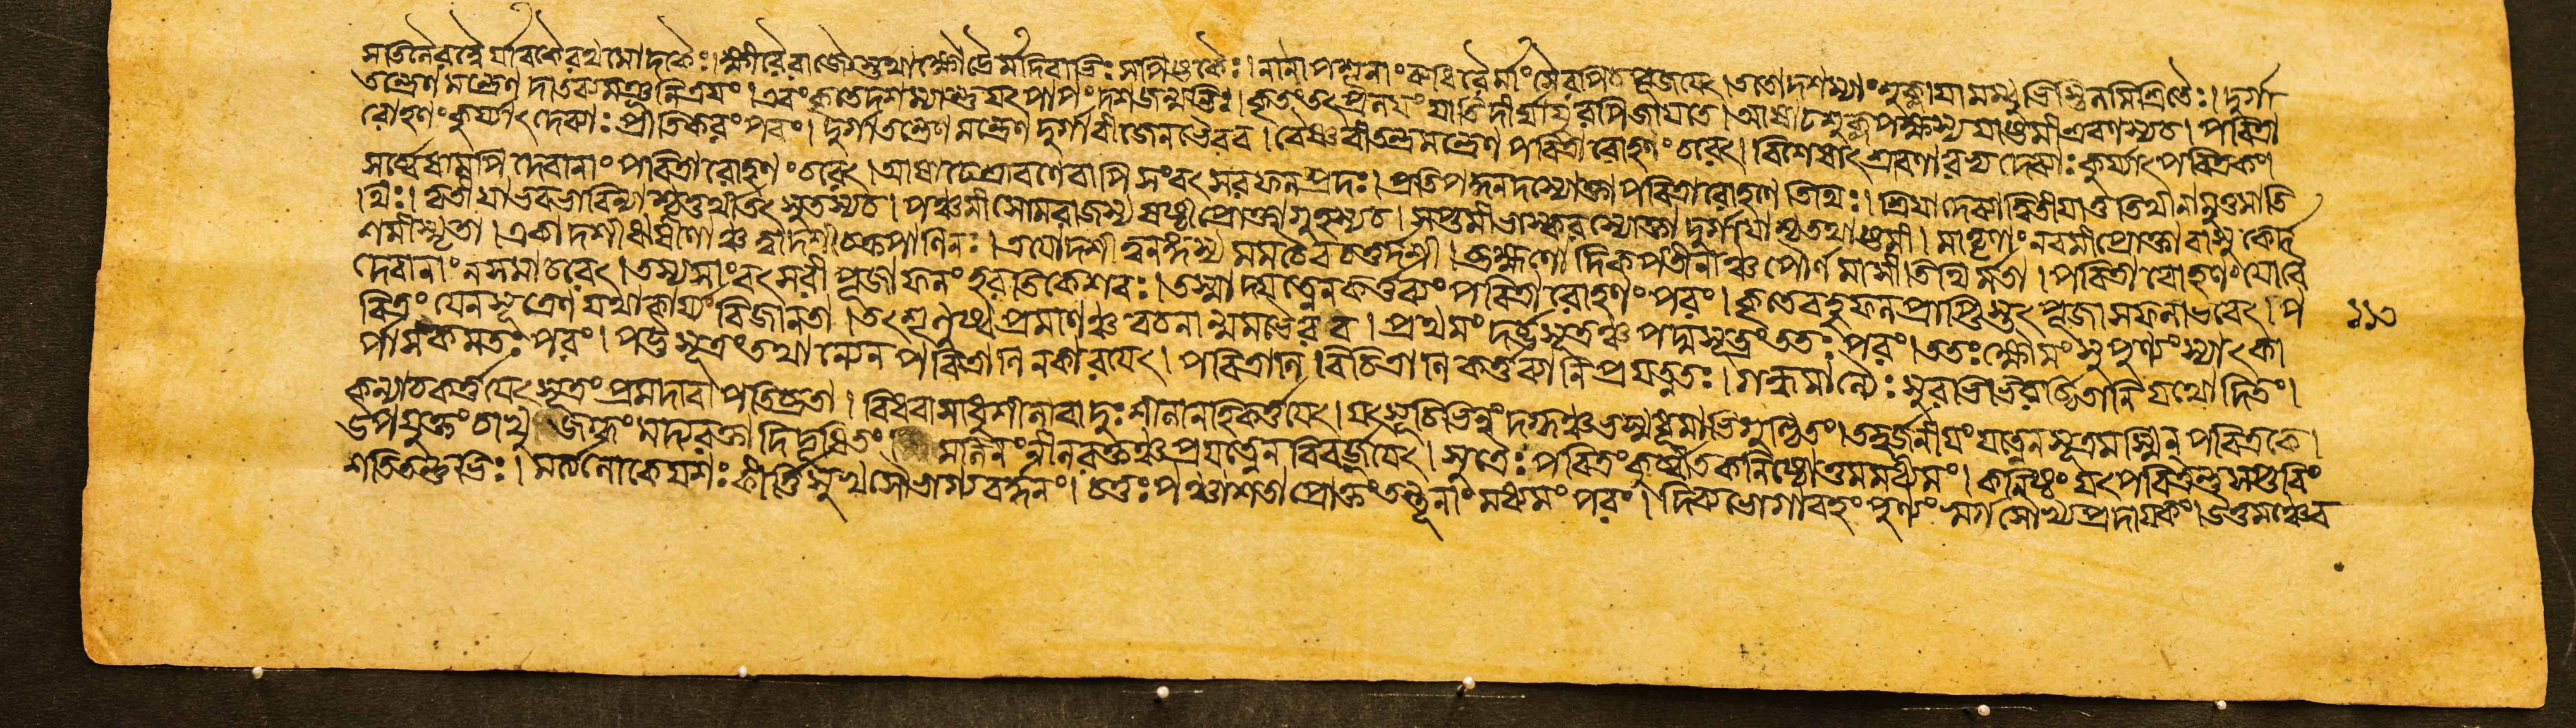 সাতনৈরন্নৈ র্যাবকৈরথ মোদকৈঃ। ক্ষীরৈরাজ্যৈস্তথাক্ষৌদ্রৈর্মদিরাভিঃ সপিণ্ডকৈঃ। নানাপশূনাং রুধিরৈর্মাংসৈরপি চ পূজয়েৎ। ততো দশম্যাং শুক্লায়াম
তন্ত্রেণ মন্ত্রেণ দাতব্যমঞ্জলিত্রয়ং। এবং কৃতে দশম্যান্তু যৎ পাপং দশজন্মভিঃ। কৃতং তৎ প্রলয়ং যাতি দীর্ঘায়ুরপি জায়তে। আষাঢ়শুক্লপক্ষস্য যাষ্টমী শ্রবণস্য চ। পবিত্রা
রোহণং কুর্য্যাৎ দেব্যাঃ প্রীতিকরং পরং। দুর্গাতন্ত্রেণ মন্ত্রেণ দুর্গাবীজেন ভৈরব। বৈষ্ণবীতন্ত্রমন্ত্রেণ পবিত্রারোহণং চরেৎ। বিশেষাৎ শ্রবণারভ্য দেব্যাঃ কুর্য্যাৎ পবিত্রকং।
সর্ব্বেষামপি দেবানাং পবিত্রারোহণং চরেৎ। আষাঢ়ে শ্রাবণে বাপি সংবৎসরফলপ্রদঃ। প্রতিপদ্ধনদস্যোক্তা পবিত্রারোহণে তিথিঃ। শ্রিয়া দেব্যা দ্বিতীয়া তু তিথীনামুত্তমা তি
থিঃ। তৃতীয়া ভবভাবিন্যাশ্চতুর্থী তৎসুতস্য চ। পঞ্চমী সোমরাজস্য ষষ্ঠী প্রোক্তা গুহস্য চ। সপ্তমী ভাস্করস্যোক্তা দুর্গায়াশ্চ তথাষ্টমী। মাতৃণাং নবমী প্রোক্তা বাসুকের্দ
শমী স্মৃতা। একাদশী ঋষীণাঞ্চ দ্বাদশী চক্রপাণিনঃ। ত্রয়োদশী ত্বনঙ্গস্য মম চৈব চতুর্দশী। ব্রহ্মণো দিক্পতীনাঞ্চ পৌর্ণমাসী তিথির্মতা। পবিত্রারোহণং যো বৈ
দেবানাং ন সমাচরেৎ। তস্য সাংবৎসরী পূজাফলং হরতি কেশবঃ। তস্মাদ্যত্নেন কর্ত্তব্যং পবিত্রারোহণং পরং। কৃতে বহুফলপ্রাপ্তিস্তৎ পূজা সফলা ভবেৎ। প ১১৩
বিত্রং যেন সূত্রেণ যথা কার্য্যং বিজানতা। তৎ শৃণুষ্ব প্রমাণঞ্চ বচনান্মম ভৈরব। প্রথমং দর্ভসূত্রঞ্চ পদ্মসূত্রং ততঃ পরং। ততঃ ক্ষৌমং সুপুণ্যং স্যাৎ কা
র্পাসকমতঃ পরং। পট্টসূত্রং তথান্যেন পবিত্রাণি ন কারয়েৎ। পবিত্রাণি বিচিত্রাণি কর্ত্তব্যানি প্রযত্নতঃ। গন্ধমাল্যৈঃ সুরভিভি যথোদিতং।
কন্যা চ কর্ত্তয়েৎ সূত্রং প্রমদা বা পতিব্রতা। বিধবা সাধুশীলা বা দুঃশীলা ন হি কর্ত্তয়েৎ। যৎ সূচিভিন্নং দগ্ধঞ্চ ভস্মধূমাভিগুণ্ঠিতং। তদ্বর্জনীয়ং যত্নেন সূত্রমস্মিন্ পবিত্রকে।
উপযুক্তং চাখু জগ্ধং মদ্যরক্তাদিদূষিতং। মলিনং নীলরক্তঞ্চ প্রযত্নেন বিবর্জ্জয়েৎ। সূত্রৈঃ পবিত্রং কুর্ব্বীত কনিষ্ঠোত্তমমধ্যমং। কনিষ্ঠং যৎ পবিত্রন্তু সপ্তবিং
শতিতন্তুভিঃ। মর্ত্যলোকে যশঃকীর্ত্তিসুখসৌভাগ্যবর্দ্ধনং। চতুঃপঞ্চাশতা প্রোক্তং তন্তূনাং মধ্যমং পরং। দিব্যভোগাবহং পুণ্যং স্বর্গসৌখ্যপ্রদায়কং। উত্তমঞ্চৈব